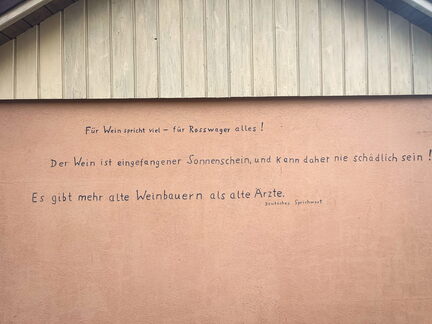 Für Wein spricht viel – für Rosswager alles!
Der Wein ist eingefangener Sonnenschein, und kann daher nie schädlich sein!
Es gibt mehr alte Weinbauern als alte Ärzte.
Deutsches Sprichwort